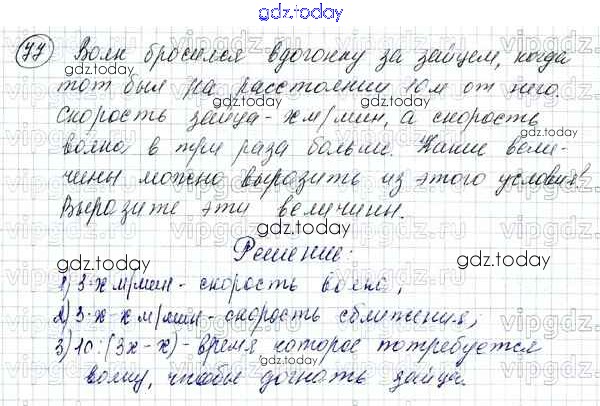 gdz.today
77 Волк бросился вдогонку за зайцем, когда
тот был на расстоянии 10 м от него.
Скорость зайца - x м/мин, а скорость
волка в три раза больше. Какие вели-
чины можно выразить из этого условия?
Выразите эти величины.
Решение:
1) 3·x м/мин - скорость волка;
2) 3·x-x м/мин - скорость сближения;
3) 10:(3x-x) - время которое потребуется
волку, чтобы догнать зайца.
gdz.today